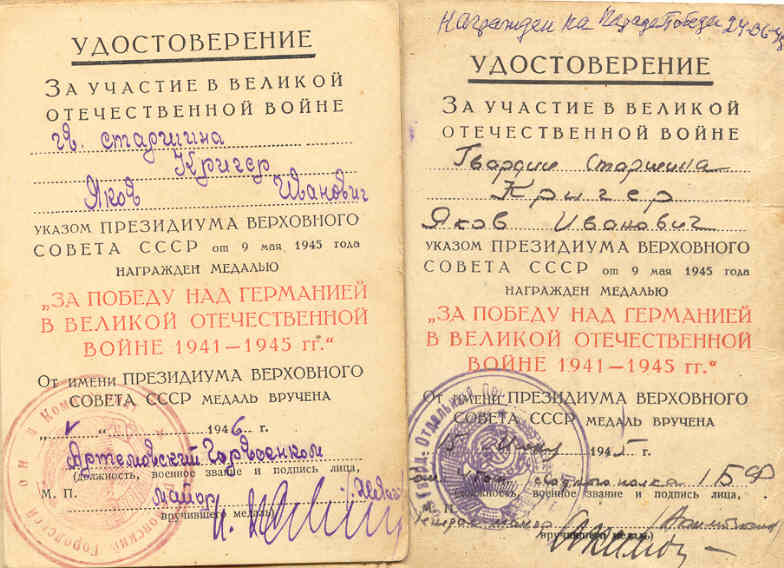 УДОСТОВЕРЕНИЕ
ЗА УЧАСТИЕ В ВЕЛИКОЙ
ОТЕЧЕСТВЕННОЙ ВОЙНЕ
гв. старшина
Кригер
Яков Иванович
УКАЗОМ ПРЕЗИДИУМА ВЕРХОВНОГО
СОВЕТА СССР от 9 мая 1945 года
НАГРАЖДЕН МЕДАЛЬЮ
„ЗА ПОБЕДУ НАД ГЕРМАНИЕЙ
В ВЕЛИКОЙ ОТЕЧЕСТВЕННОЙ
ВОЙНЕ 1941—1945 гг.“
От имени ПРЕЗИДИУМА ВЕРХОВНОГО
СОВЕТА СССР МЕДАЛЬ ВРУЧЕНА
„V“ 1946 г.
Артемовский Горвоенком
(должность, военное звание и подпись лица,
М. П. майор
вручившего медаль)
Награжден на Параде Победы 24-06-45
УДОСТОВЕРЕНИЕ
ЗА УЧАСТИЕ В ВЕЛИКОЙ
ОТЕЧЕСТВЕННОЙ ВОЙНЕ
Гвардии Старшина
Кригер
Яков Иванович
УКАЗОМ ПРЕЗИДИУМА ВЕРХОВНОГО
СОВЕТА СССР от 9 мая 1945 года
НАГРАЖДЕН МЕДАЛЬЮ
„ЗА ПОБЕДУ НАД ГЕРМАНИЕЙ
В ВЕЛИКОЙ ОТЕЧЕСТВЕННОЙ
ВОЙНЕ 1941—1945 гг.“
От имени ПРЕЗИДИУМА ВЕРХОВНОГО
СОВЕТА СССР МЕДАЛЬ ВРУЧЕНА
1945 г.
сводного полка 1БФ
(должность, военное звание и подпись лица,
М. П. майор
вручившего медаль)